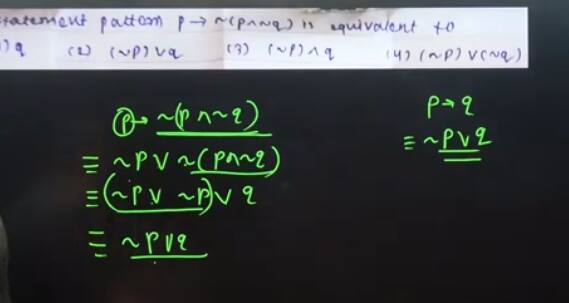 statement pattern p → ~(p∧~q) is equivalent to
1) q (2) (~p)∨q (3) (~p)∧q (4) (~p)∨(~q)
p → ~(p∧~q)
≡ ~p∨~(p∧~q)
≡ (~p∨ ~p)∨q
≡ ~p∨q
p→q
≡ ~p∨q